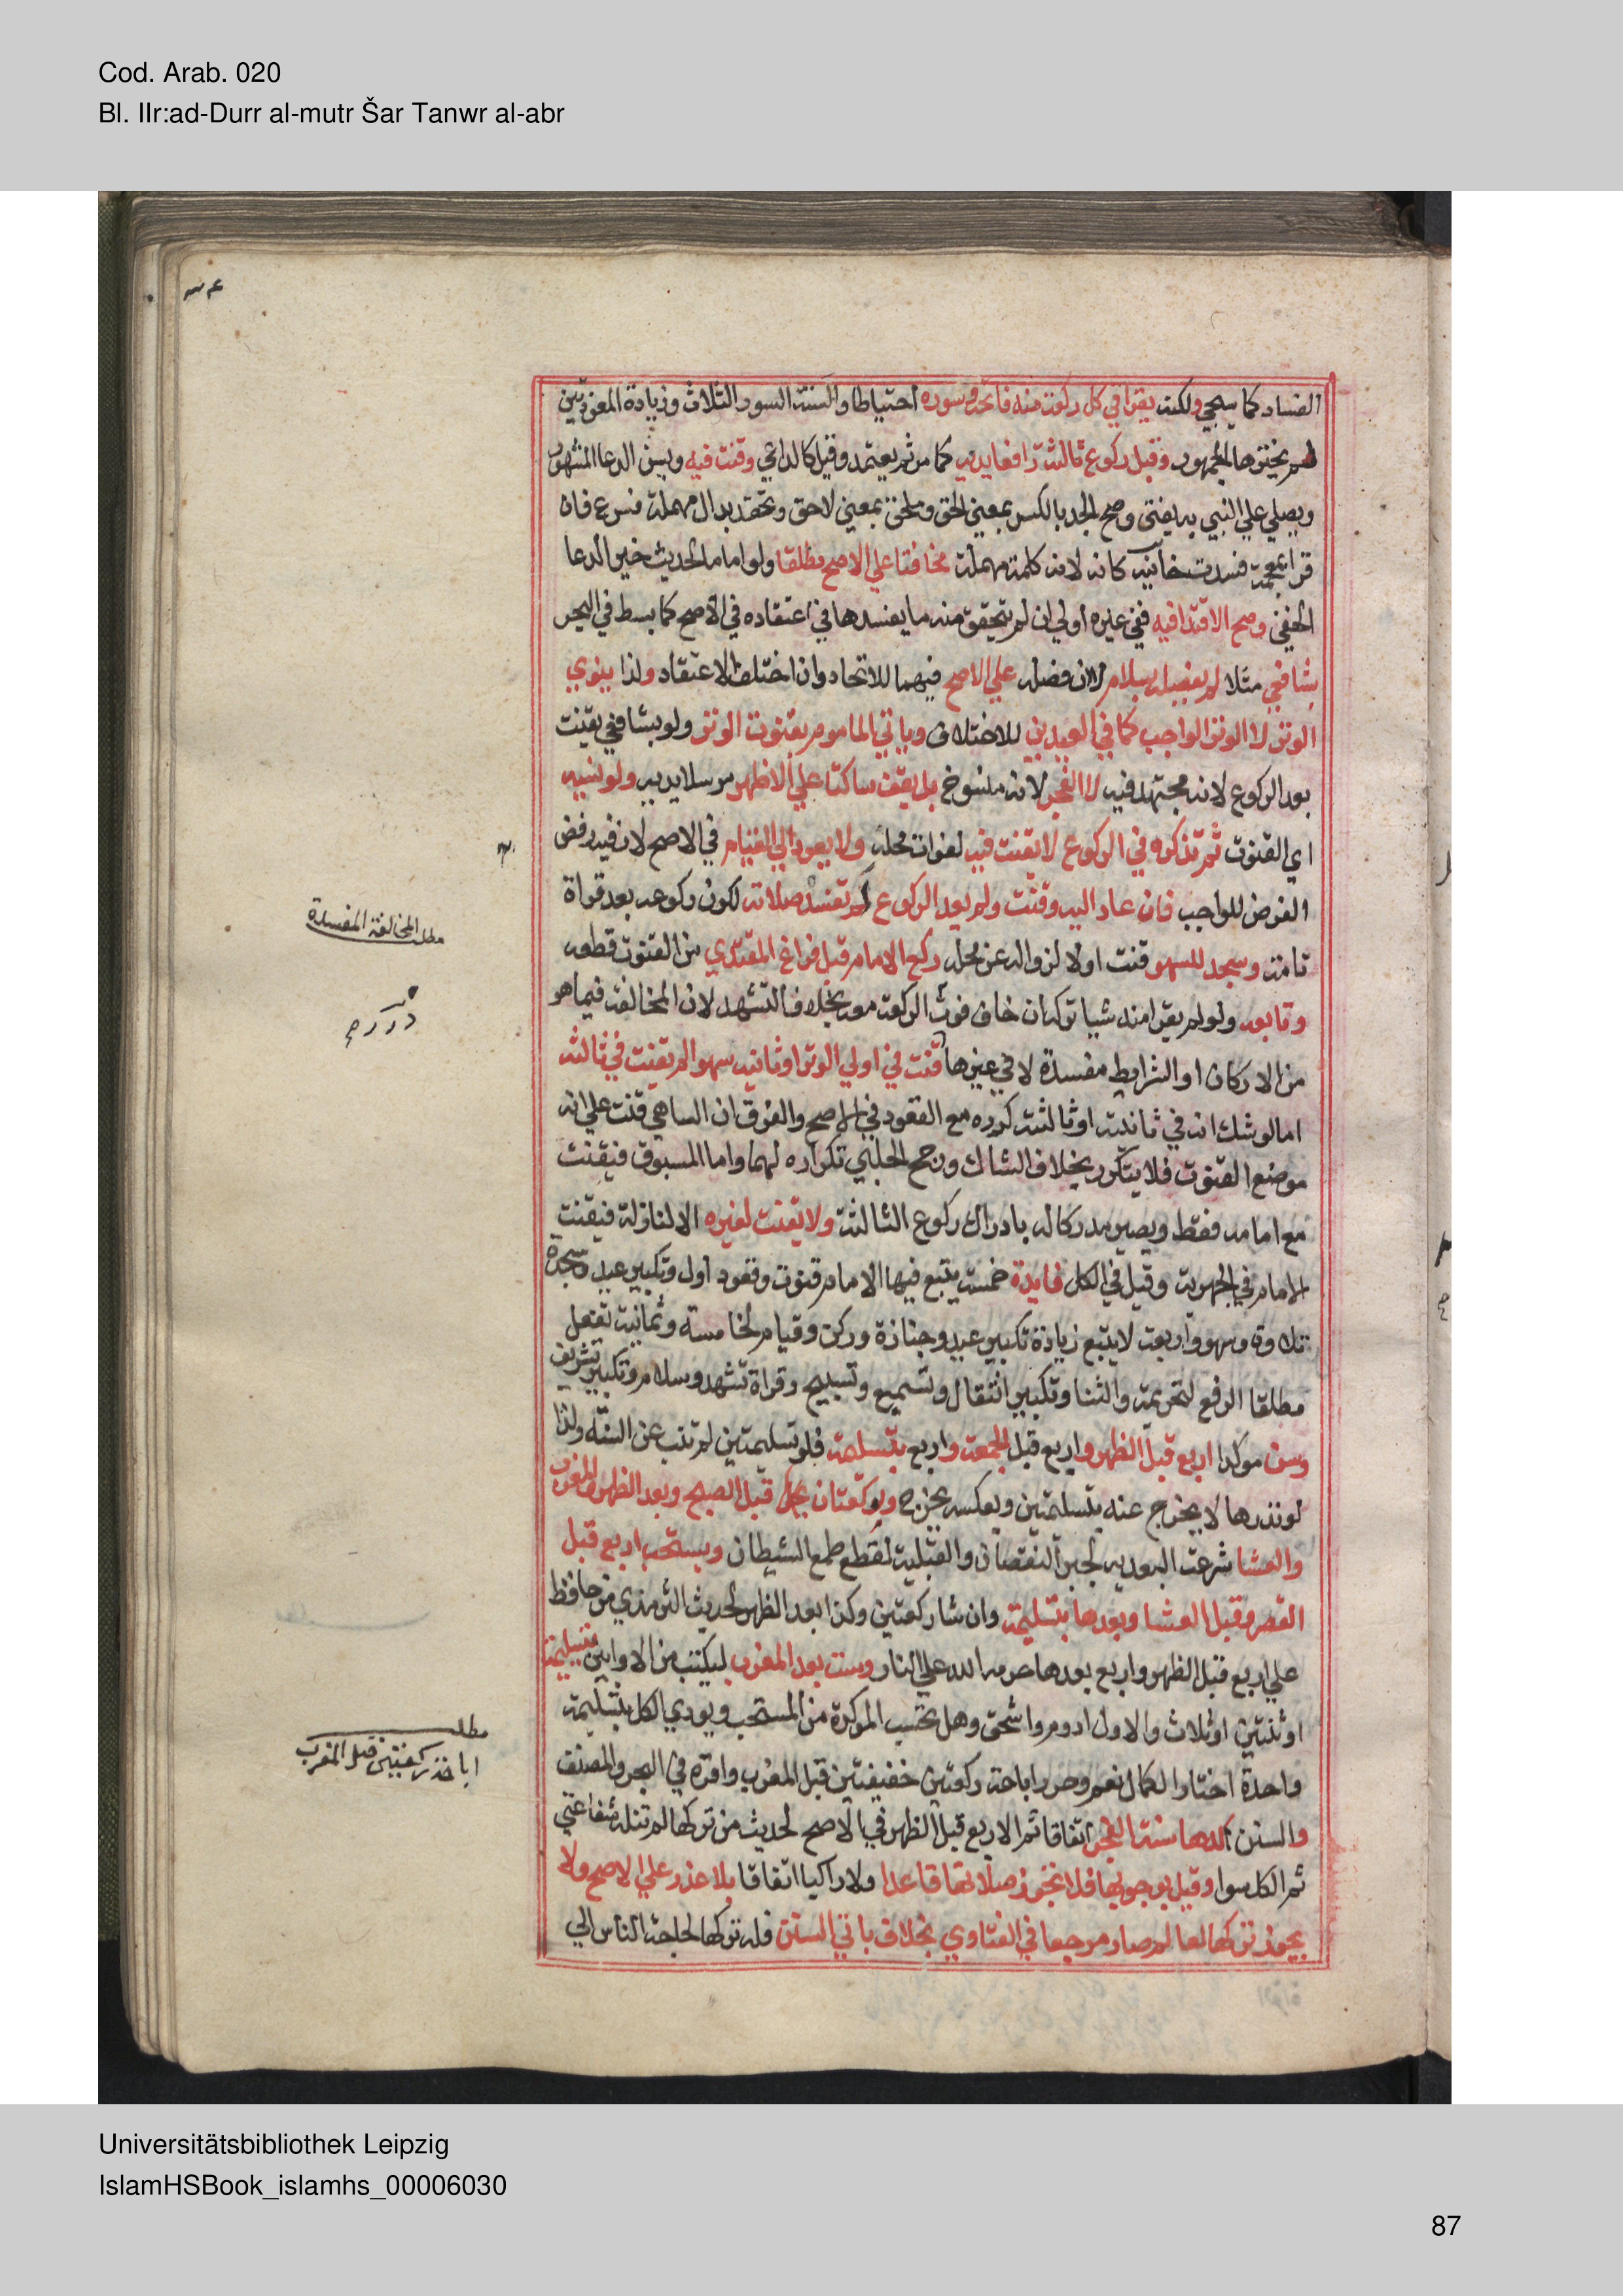 Cod. Arab. 020
Bl. IIr:ad-Durr al-mutr Šar Tanwr al-abr
٣٤
الفساد كما سيجي ولكنه يقرا في كل ركعة منه فاتحة وسورة احتياطا والسنة السور الثلاث وزيادة المعوذتين
لم يخترها الجمهور وقبل ركوع ثالثته رافعا يديه كما مر ثم يعتمد وقيل كالداعي وقنت فيه ويسن الدعا المشهور
ويصلي علي النبي به يفتي وصح الجد بالكسر بمعني الحق وملحق بمعني لاحق ونحفد بدال مهملة فان
قرا بمعجمة فسدت خانيه كانه لانه كلمة مهملة مخافتا علي الاصح مطلقا ولو اماما لحديث خير الدعا
الخفي وصح الاقتدا فيه ففي غيره اولي ان لم يتحقق منه ما يفسدها في اعتقاده في الاصح كما بسط في البحر
بشافعي مثلا لم يفصله بسلام لا ان فصله علي الاصح فيهما للاتحاد وان اختلف الاعتقاد ولذا ينوي
الوتر لا الوتر الواجب كما في العيدين للاختلاف وياتي الماموم بقنوت الوتر ولو بشافعي يقنت
بعد الركوع لانه مجتهد فيه لا الفجر لانه منسوخ بل يقف ساكتا علي الاظهر مرسلا يديه ولو نسيه
اي القنوت ثم تذكره في الركوع لا يقنت فيه لفوات محله ولا يعود الي القيام في الاصح لان فيه رفض
الفرض للواجب فان عاد اليه وقنت ولم يعد الركوع لم تفسد صلاته لكون ركوعه بعد قراة
تامة وسجد للسهو قنت اولا لزواله عن محله ركع الامام قبل فراغ المقتدي من القنوت قطعه
وتابعه ولو لم يقرا منه شيا تركه ان خاف فوت الركعة معه بخلاف التشهد لان المخالفة فيما هو
من الاركان او الشرايط مفسدة لا في غيرها قنت في اولي الوتر او ثانيته سهوا لم يقنت في ثالثته
اما لو شك انه في ثانيته او ثالثته كرره مع القعود في الاصح والفرق ان الساهي قنت علي انه
موضع القنوت فلا يتكرر بخلاف الشاك ورجح الحلبي تكراره لهما واما المسبوق فيقنت
مع امامه فقط ويصير مدركا له بادراك ركوع الثالثة ولا يقنت لغيره الا لنازلة فيقنت
الامام في الجهرية وقيل في الكل فايدة خمسة يتبع فيها الامام قنوت وقعود اول وتكبير عيد وسجدة
تلاوة وسهو واربعة لا يتبع زيادة تكبير عيد وجنازة وركن وقيام لخامسة وثمانية تفعل
مطلقا الرفع لتحريمة والثنا وتكبير انتقال وتسميع وتسبيح وقراة تشهد وسلام وتكبير تشريق
وسن موكدا اربع قبل الظهر واربع قبل الجمعة واربع بتسليمة فلو تسليمتين لم تنب عن السنة ولذا
لو نذرها لا يخرج عنه بتسليمتين وبعكسه يخرج وركعتان قبل الصبح وبعد الظهر والمغرب
والعشا شرعت البعدية لجبر النقصان والقبلية لقطع طمع الشيطان ويستحب اربع قبل
العصر وقبل العشا وبعدها بتسليمة وان شا ركعتين وكذا بعد الظهر لحديث الترمذي من حافظ
علي اربع قبل الظهر واربع بعدها حرمه الله علي النار وست بعد المغرب ليكتب من الاوابين بتسليمة
او ثنتين او ثلاث والاول ادوم واشق وهل تحسب الموكدة من المستحب ويودي الكل بتسليمة
واحدة اختار الكمال نعم وحرر اباحة ركعتين خفيفتين قبل المغرب واقره في البحر والمصنف
والسنن اكدها سنة الفجر اتفاقا ثم الاربع قبل الظهر في الاصح لحديث من تركها لم تنله شفاعتي
ثم الكل سوا وقيل بوجوبها فلا تجوز صلاتها قاعدا ولا راكبا اتفاقا بلا عذر علي الاصح ولا
يجوز تركها لعالم صار مرجعا في الفتاوي بخلاف باقي السنن فله تركها لحاجة الناس الي
مطلب المخالفة المفسدة
درر
مطلب
اباحة ركعتين قبل المغرب
Universitätsbibliothek Leipzig
IslamHSBook_islamhs_00006030
87